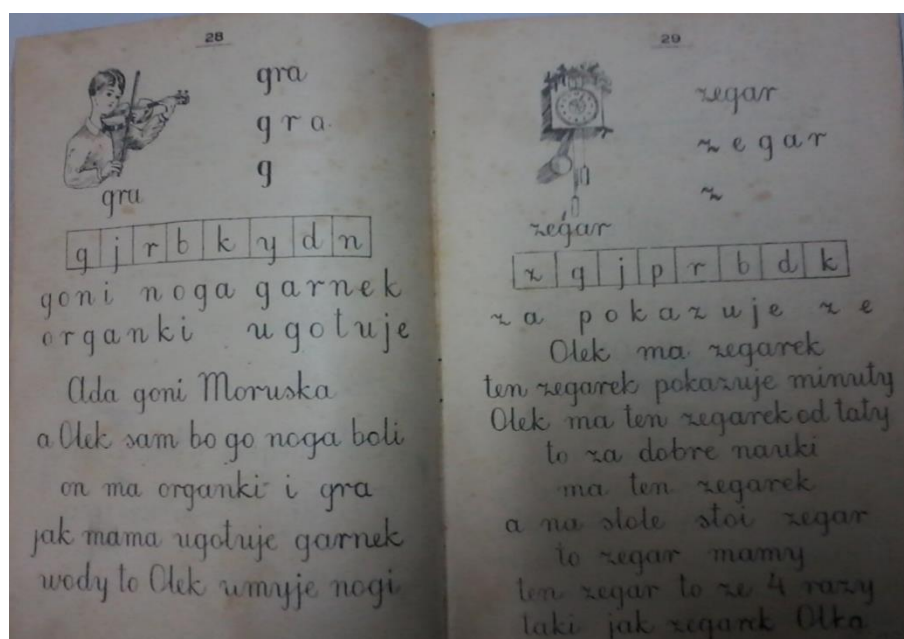 28
gra
g r a
g
gra
g j r b k y d n
goni noga garnek
organki ugotuje
Ada goni Moruska
a Olek sam bo go noga boli
on ma organki i gra
jak mama ugotuje garnek
wody to Olek umyje nogi
29
zegar
z e g a r
z
zegar
z g j p r b d k
z a p o k a z u j e z e
Olek ma zegarek
ten zegarek pokazuje minuty
Olek ma ten zegarek od taty
to za dobre nauki
ma ten zegarek
a na stole stoi zegar
to zegar mamy
ten zegar to ze 4 razy
taki jak zegarek Olka